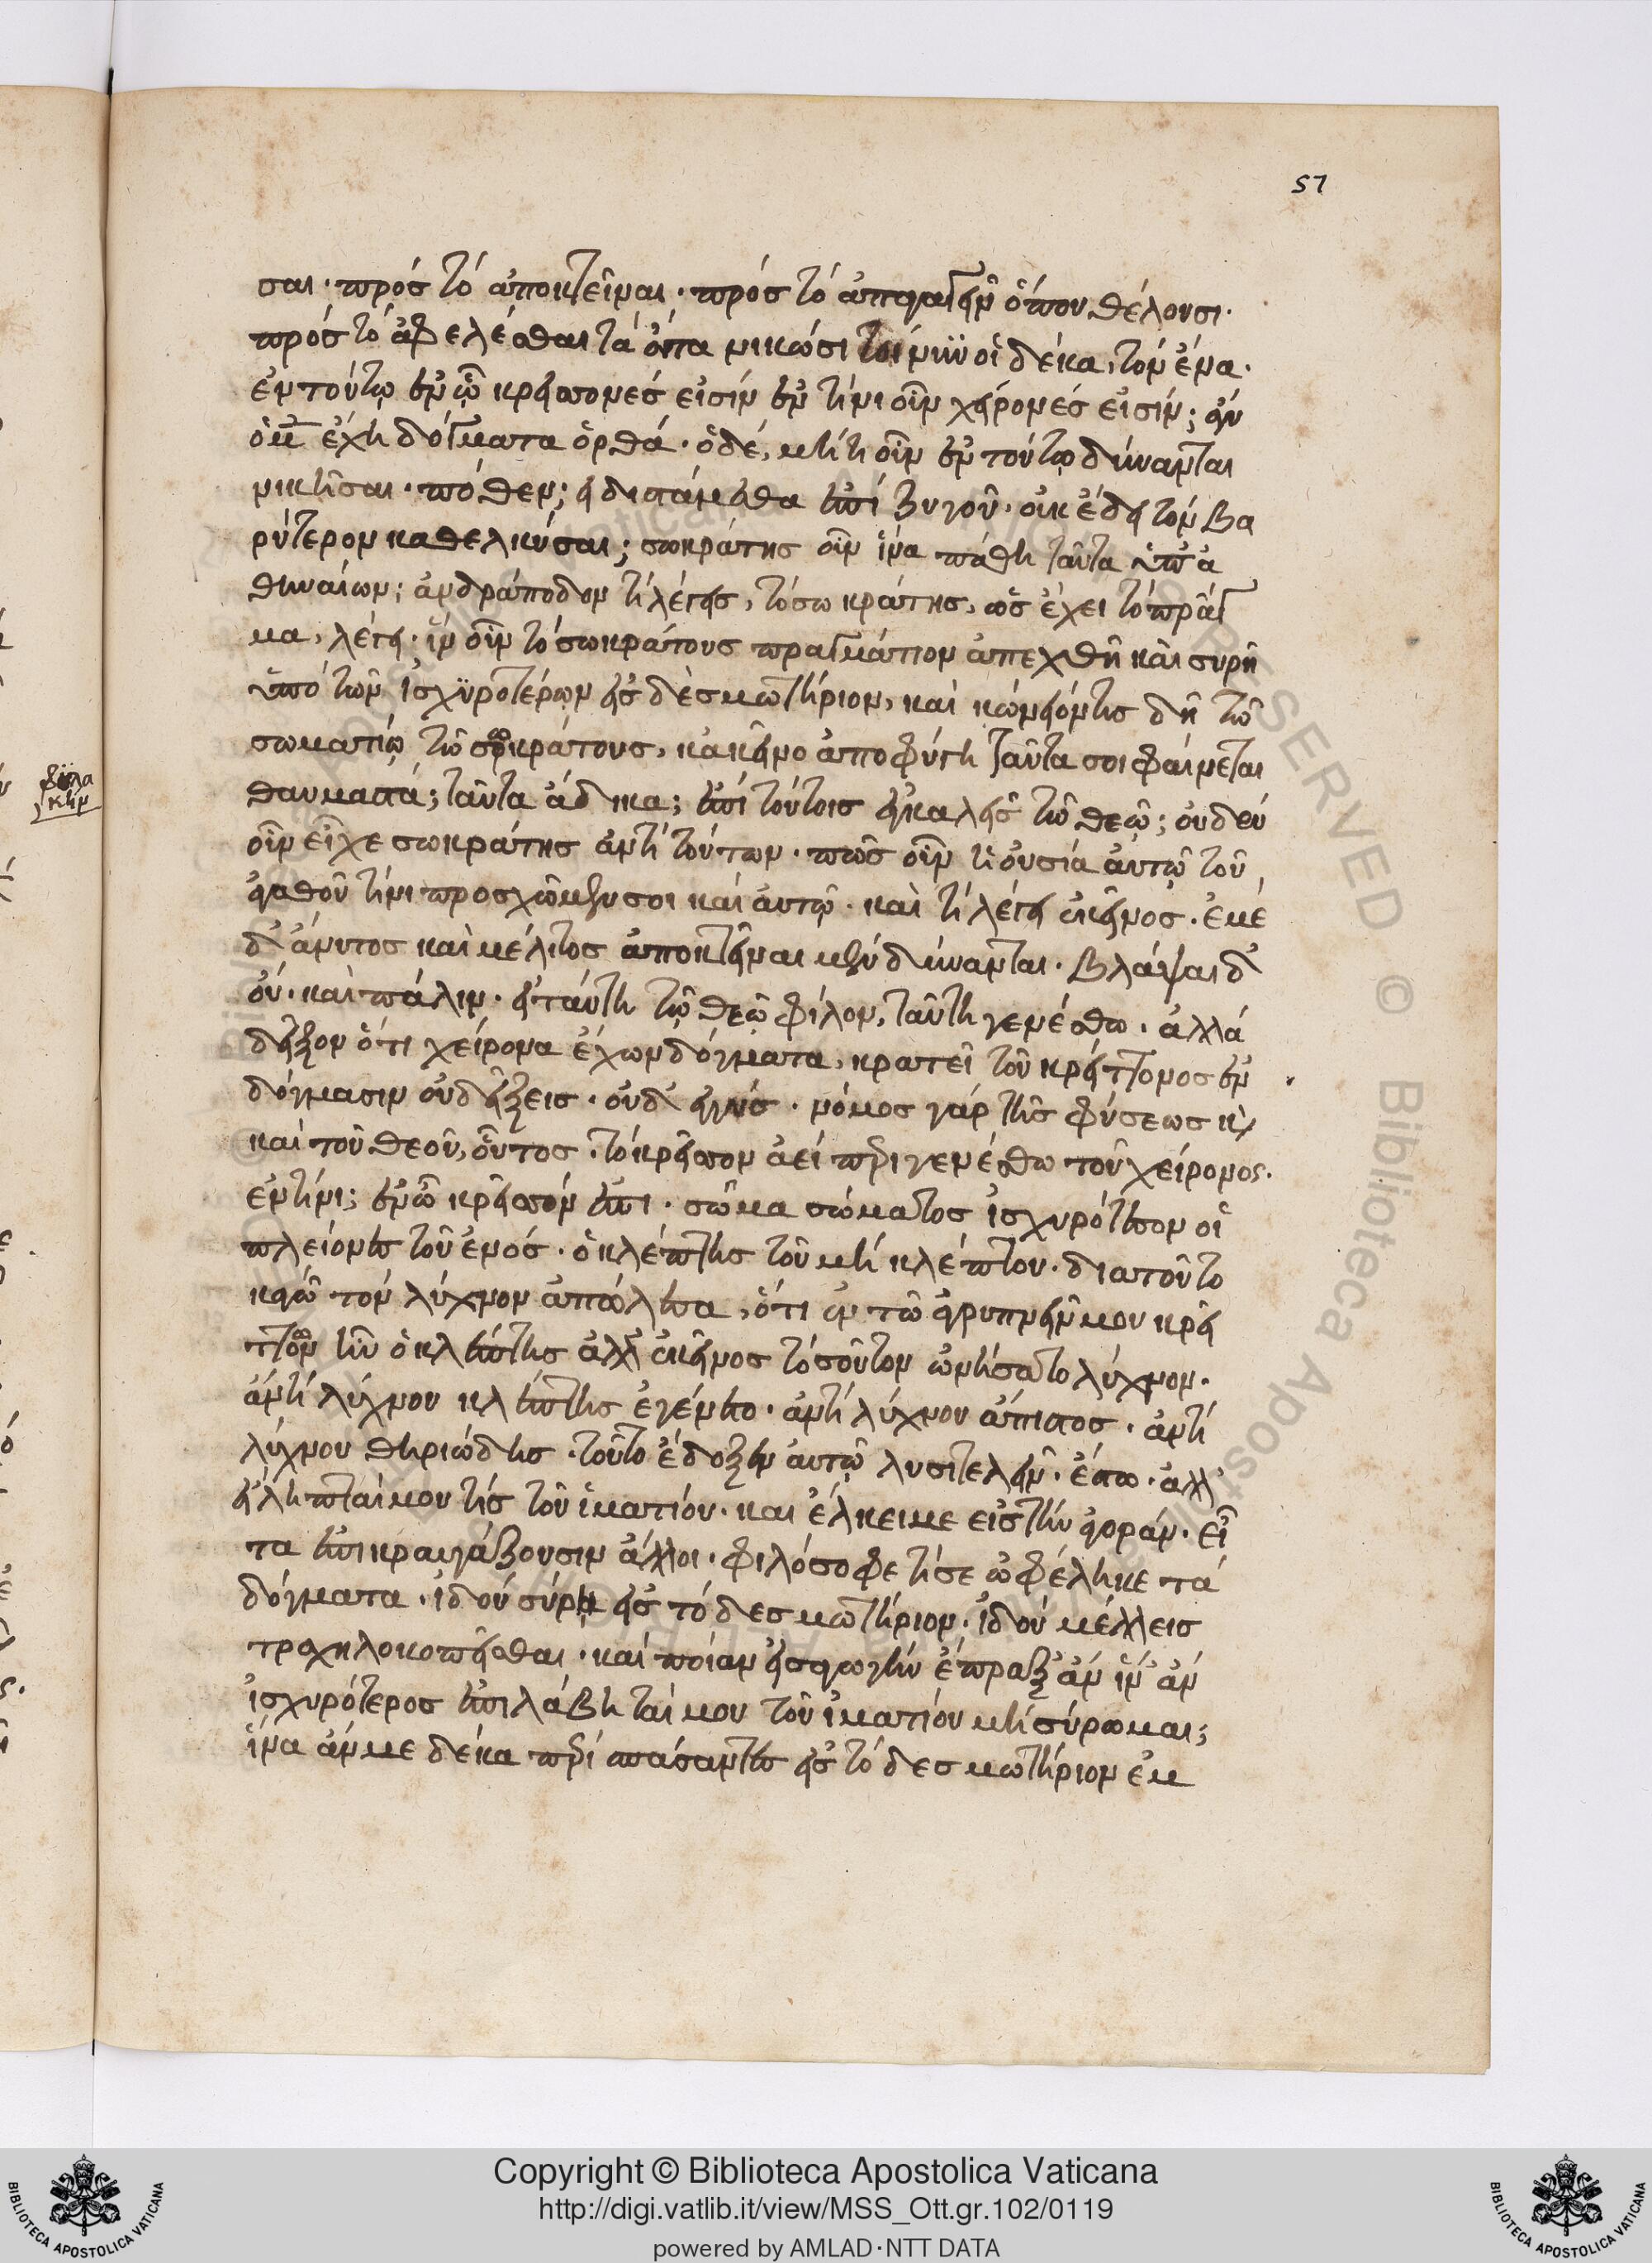 57
σαι · πρὸς τὸ ἀποκτεῖναι · πρὸς τὸ ἀπαγαγεῖν ὅπου θέλουσι ·
πρὸς τὸ ἀφελέσθαι τὰ ὄντα νικῶσι τοίνυν οἱ δέκα, τὸν ἕνα ·
ἐν τούτῳ ἐν ᾧ κρείσσονές εἰσίν ἐν τίνι οὖν χείρονές εἰσίν; ἂν
ὁ μὲν ἔχῃ δόγματα ὀρθά · ὁ δὲ, μή τι οὖν ἐν τούτῳ δύνανται
νικῆσαι · πόθεν; εἰ δ' ἱστάμεθα ἐπὶ ζυγοῦ · οὐκ ἔδει τὸν βα
ρύτερον καθελκύσαι; σωκράτης οὖν ἵνα πάθῃ ταῦτα ὑπ' ἀ
θηναίων; ἀνδράποδον τί λέγεις, τὸ σωκράτης, ὡς ἔχει τὸ πρᾶγ
μα, λέγε · ἵν οὖν τὸ σωκράτους πραγμάτιον ἀπεχθῇ καὶ συρῇ
ὑπὸ τῶν ἰσχυροτέρων εἰς δεσμωτήριον, καὶ κώνειόν τις δῇ τῷ
σωματίῳ τῷ σωκράτους, κἀκεῖνο ἀποφύγῃ ταῦτα σοι φαίνεται
θαυμαστά; ταῦτα ἄδικα; ἐπὶ τούτοις ἐγκαλεῖς τῷ θεῷ; οὐδὲν
οὖν εἶχε σωκράτης ἀντὶ τούτων · πῶς οὖν ἡ οὐσία αὐτῷ τοῦ
ἀγαθοῦ τίνι προσχῶμεν σοι καὶ αὐτῷ · καὶ τί λέγει ἐκεῖνος · ἐμὲ
δ' ἄνυτος καὶ μέλιτος ἀποκτεῖναι μὲν δύνανται · βλάψαι δ'
οὔ · καὶ πάλιν · εἰ ταύτῃ τῷ θεῷ φίλον, ταύτῃ γενέσθω · ἀλλὰ
δεῖξον ὅτι χείρονα ἔχων δόγματα, κρατεῖ τοῦ κρείττονος ἐν
δόγμασιν οὐ δείξεις · οὐδ' ἐγγύς · νόμος γὰρ τῆς φύσεως κὶ
καὶ τοῦ θεοῦ, οὗτος · τὸ κρεῖσσον ἀεὶ περιγενέσθω τοῦ χείρονος.
ἐν τίνι; ἐν ᾧ κρεῖσσόν ἐστι · σῶμα σώματος ἰσχυρότερον οἱ
πλείονες τοῦ ἑνός · ὁ κλέπτης τοῦ μὴ κλέπτου · διατοῦτο
κἀγὼ τὸν λύχνον ἀπώλεσα, ὅτι ἐν τῷ ἀγρυπνεῖν μου κρεί
ττων ἦν ὁ κλέπτης ἀλλ' ἐκεῖνος τοσοῦτον ὠνήσατο λύχνον ·
ἀντὶ λύχνου κλέπτης ἐγένετο · ἀντὶ λύχνου ἄπιστος · ἀντὶ
λύχνου θηριώδης · τοῦτο ἔδοξεν αὐτῷ λυσιτελεῖν · ἔστω · ἀλλ'
εἴληπταί μου τὶς τοῦ ἱματίου · και ἕλκει με εἰς τὴν ἀγοράν · εἶ
τα ἐπικραυγάζουσιν ἄλλοι · φιλόσοφε τί σε ὠφέληκε τὰ
δόγματα · ἰδοὺ σύρῃ εἰς τὸ δεσμωτήριον · ἰδοὺ μέλλεις
τραχηλοκοπεῖσθαι · καὶ ποίαν εἰσαγωγὴν ἔπραξ' ἂν ἵν' ἂν
ἰσχυρότερος ἐπιλάβηταί μου τοῦ ἱματίου μὴ σύρωμαι;
ἵνα ἄν με δέκα περισπάσαντες εἰς τὸ δεσμωτήριον ἐμ
φύλα
κὴν
Copyright © Biblioteca Apostolica Vaticana
http://digi.vatlib.it/view/MSS_Ott.gr.102/0119
powered by AMLAD·NTT DATA